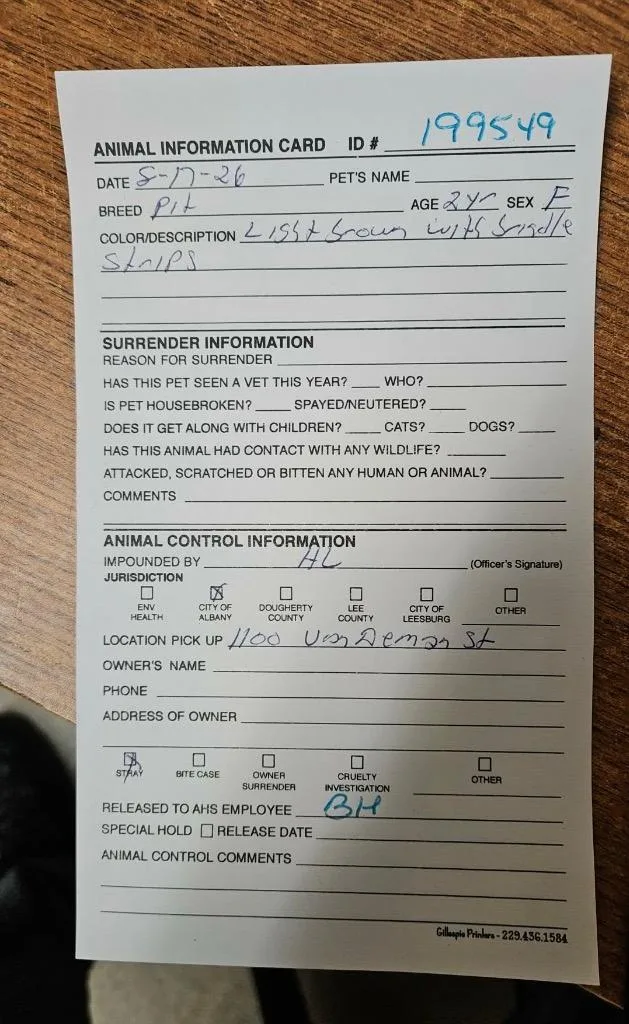 ANIMAL INFORMATION CARD ID # 199549
DATE 8-17-26 PET'S NAME
BREED Pit AGE 2yr SEX F
COLOR/DESCRIPTION Light brown with brindle
Strips
SURRENDER INFORMATION
REASON FOR SURRENDER
HAS THIS PET SEEN A VET THIS YEAR? WHO?
IS PET HOUSEBROKEN? SPAYED/NEUTERED?
DOES IT GET ALONG WITH CHILDREN? CATS? DOGS?
HAS THIS ANIMAL HAD CONTACT WITH ANY WILDLIFE?
ATTACKED, SCRATCHED OR BITTEN ANY HUMAN OR ANIMAL?
COMMENTS
ANIMAL CONTROL INFORMATION
IMPOUNDED BY AL (Officer's Signature)
JURISDICTION
ENV HEALTH CITY OF ALBANY DOUGHERTY COUNTY LEE COUNTY CITY OF LEESBURG OTHER
LOCATION PICK UP 1100 VanDeman St
OWNER'S NAME
PHONE
ADDRESS OF OWNER
STRAY BITE CASE OWNER SURRENDER CRUELTY INVESTIGATION OTHER
RELEASED TO AHS EMPLOYEE BH
SPECIAL HOLD RELEASE DATE
ANIMAL CONTROL COMMENTS
Gillespie Printers - 229.436.1584